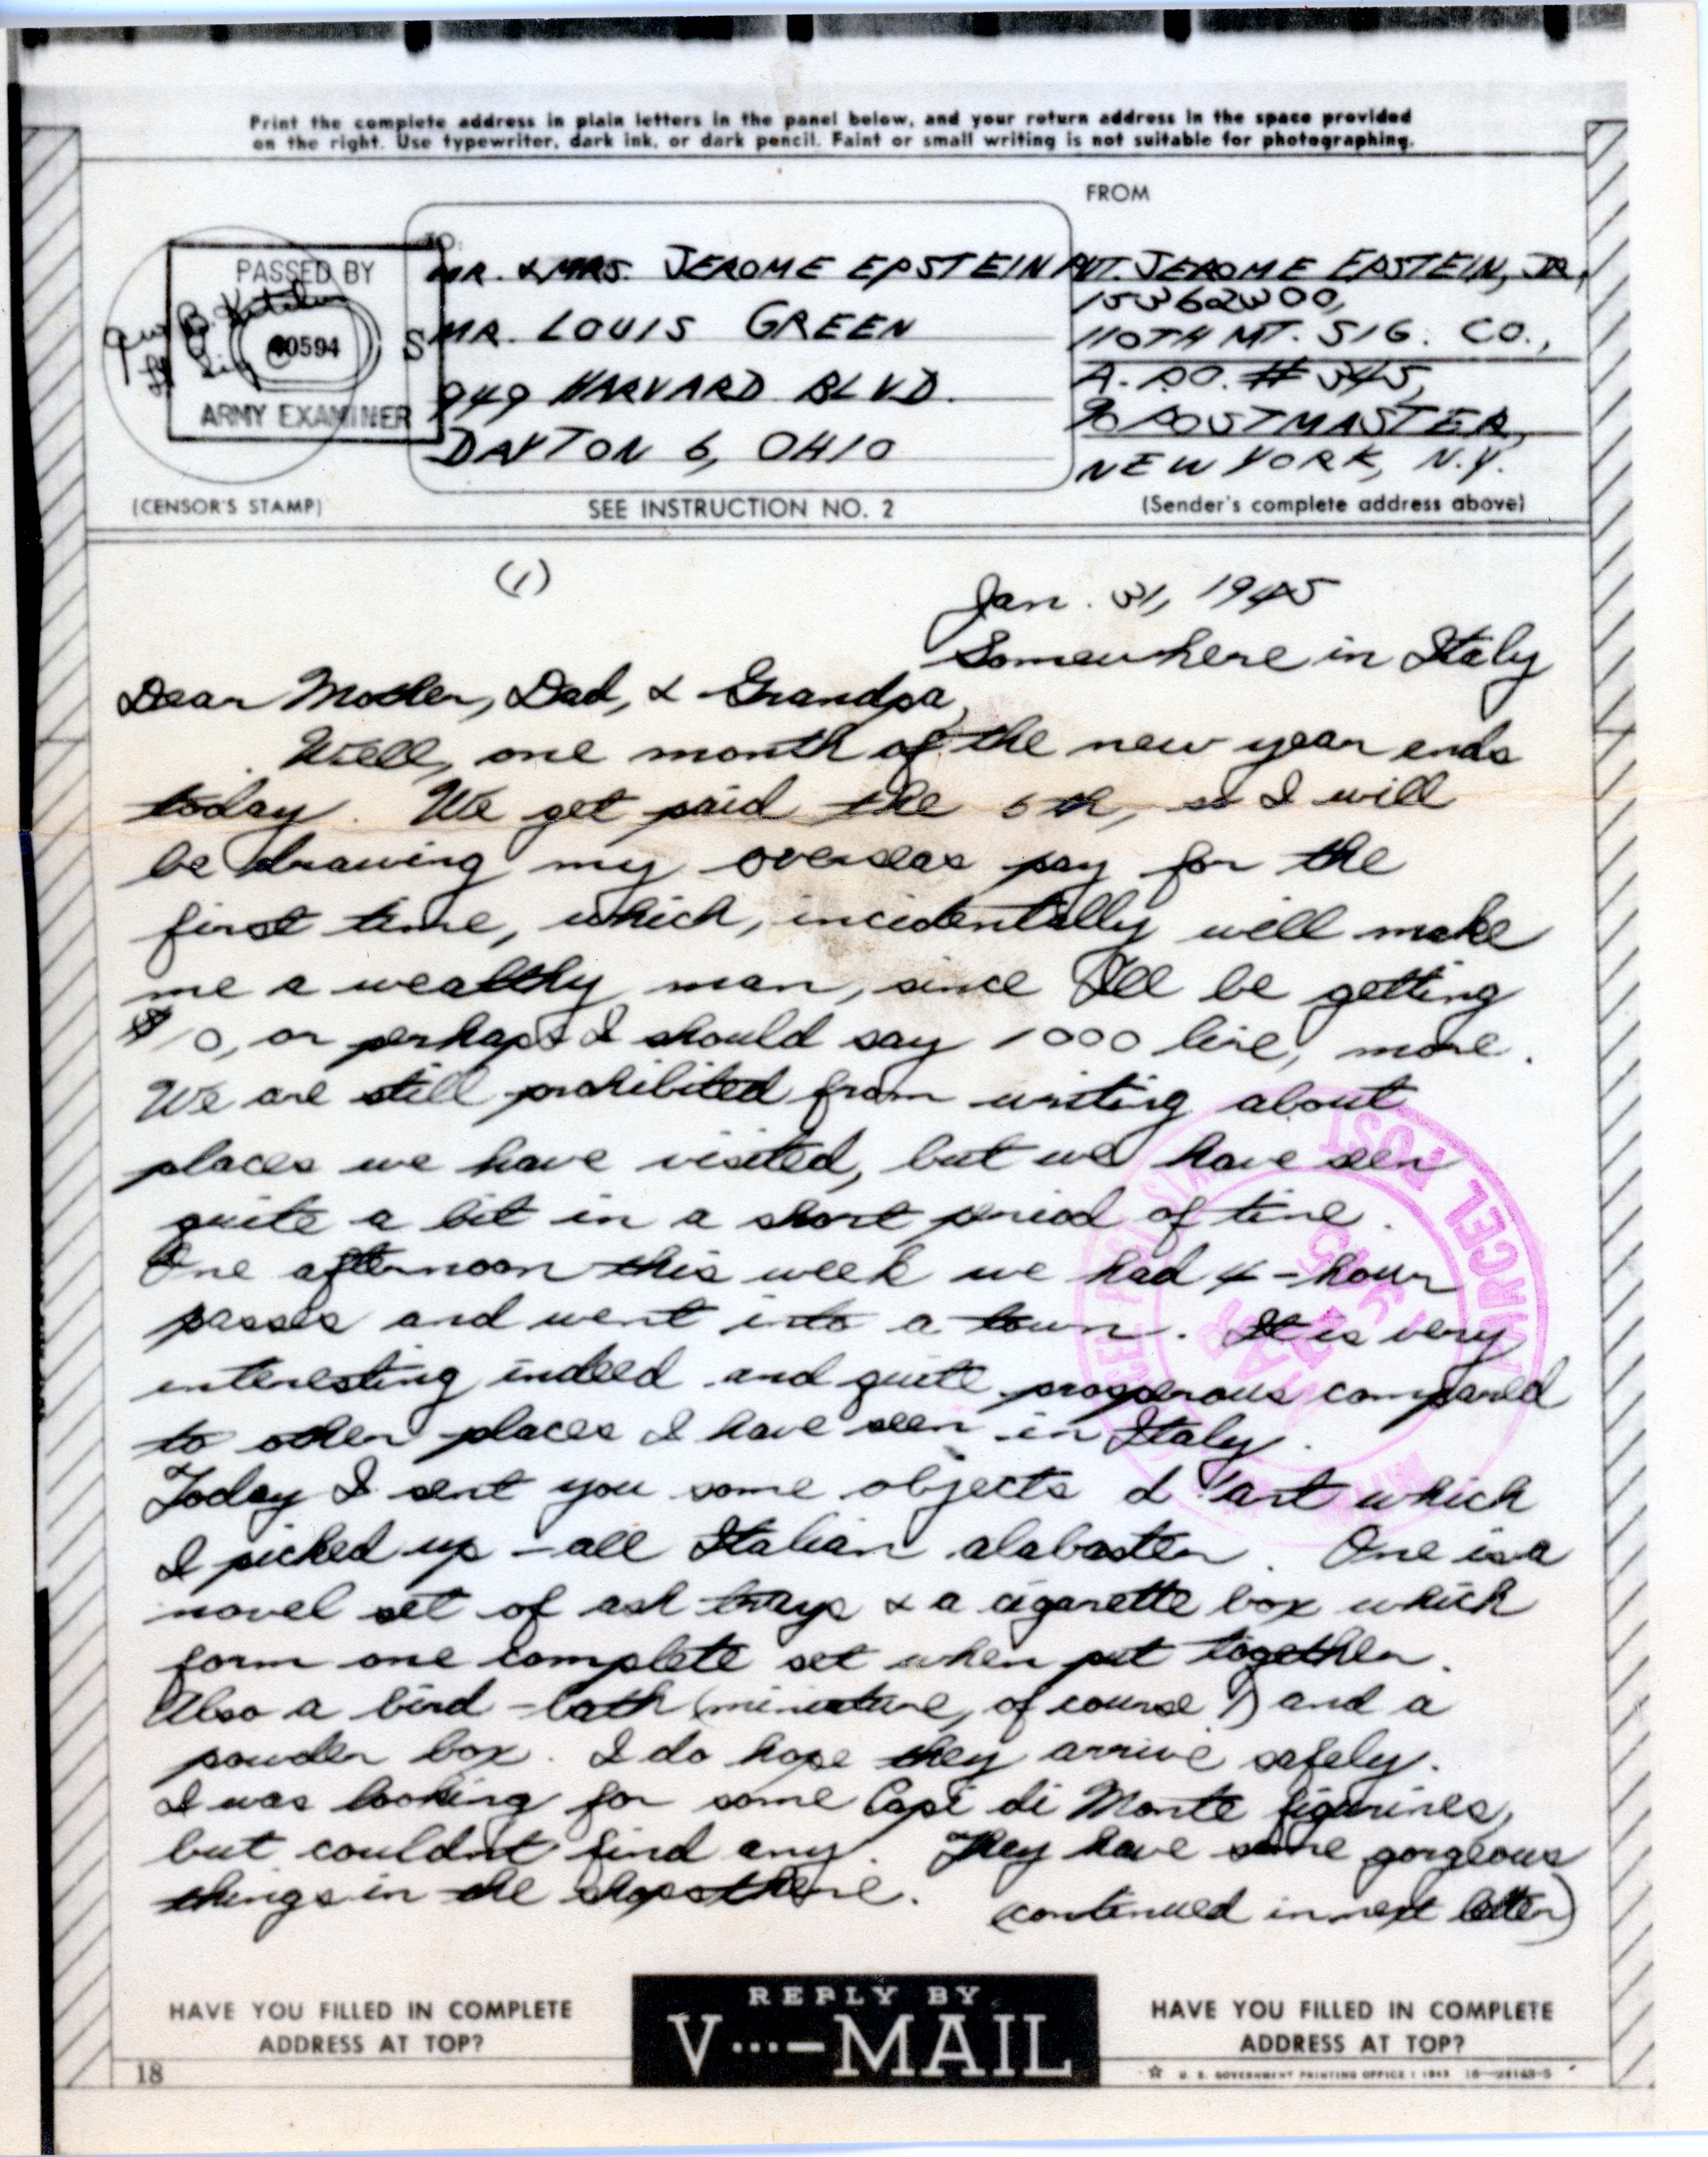 Print the complete address in plain letters in the panel below, and your return address in the space provided
on the right. Use typewriter, dark ink, or dark pencil. Faint or small writing is not suitable for photographing.
FROM
PASSED BY
40594
ARMY EXAMINER
(CENSOR'S STAMP)
TO:
MR. & MRS. JEROME EPSTEIN
MR. LOUIS GREEN
949 HARVARD BLVD.
DAYTON 6, OHIO
SEE INSTRUCTION NO. 2
PVT. JEROME EPSTEIN, JR.
15362300,
110TH MT. SIG. CO.,
A.P.O. # 345,
% POSTMASTER,
NEW YORK, N.Y.
(Sender's complete address above)
(1)
Jan. 31, 1945
Somewhere in Italy
Dear Mother, Dad, & Grandpa,
Well, one month of the new year ends
today. We get paid the 5th, so I will
be drawing my overseas pay for the
first time, which, incidentally will make
me a wealthy man, since I'll be getting
$10, or perhaps I should say 1000 lire, more.
We are still prohibited from writing about
places we have visited, but we have seen
quite a bit in a short period of time.
One afternoon this week we had 4-hour
passes and went into a town. It is very
interesting indeed and quite prosperous compared
to other places I have seen in Italy.
Today I sent you some objects d'art which
I picked up - all Italian alabaster. One is a
novel set of ash trays & a cigarette box which
form one complete set when put together.
Also a bird-bath (miniature, of course!) and a
powder box. I do hope they arrive safely.
I was looking for some Capi di Monte figurines,
but couldn't find any. They have some gorgeous
things in the shops there.
(continued in next letter)
PARCEL POST
HAVE YOU FILLED IN COMPLETE
ADDRESS AT TOP?
REPLY BY
V···—MAIL
HAVE YOU FILLED IN COMPLETE
ADDRESS AT TOP?
18
☆ U. S. GOVERNMENT PRINTING OFFICE : 1943 16—28143-5